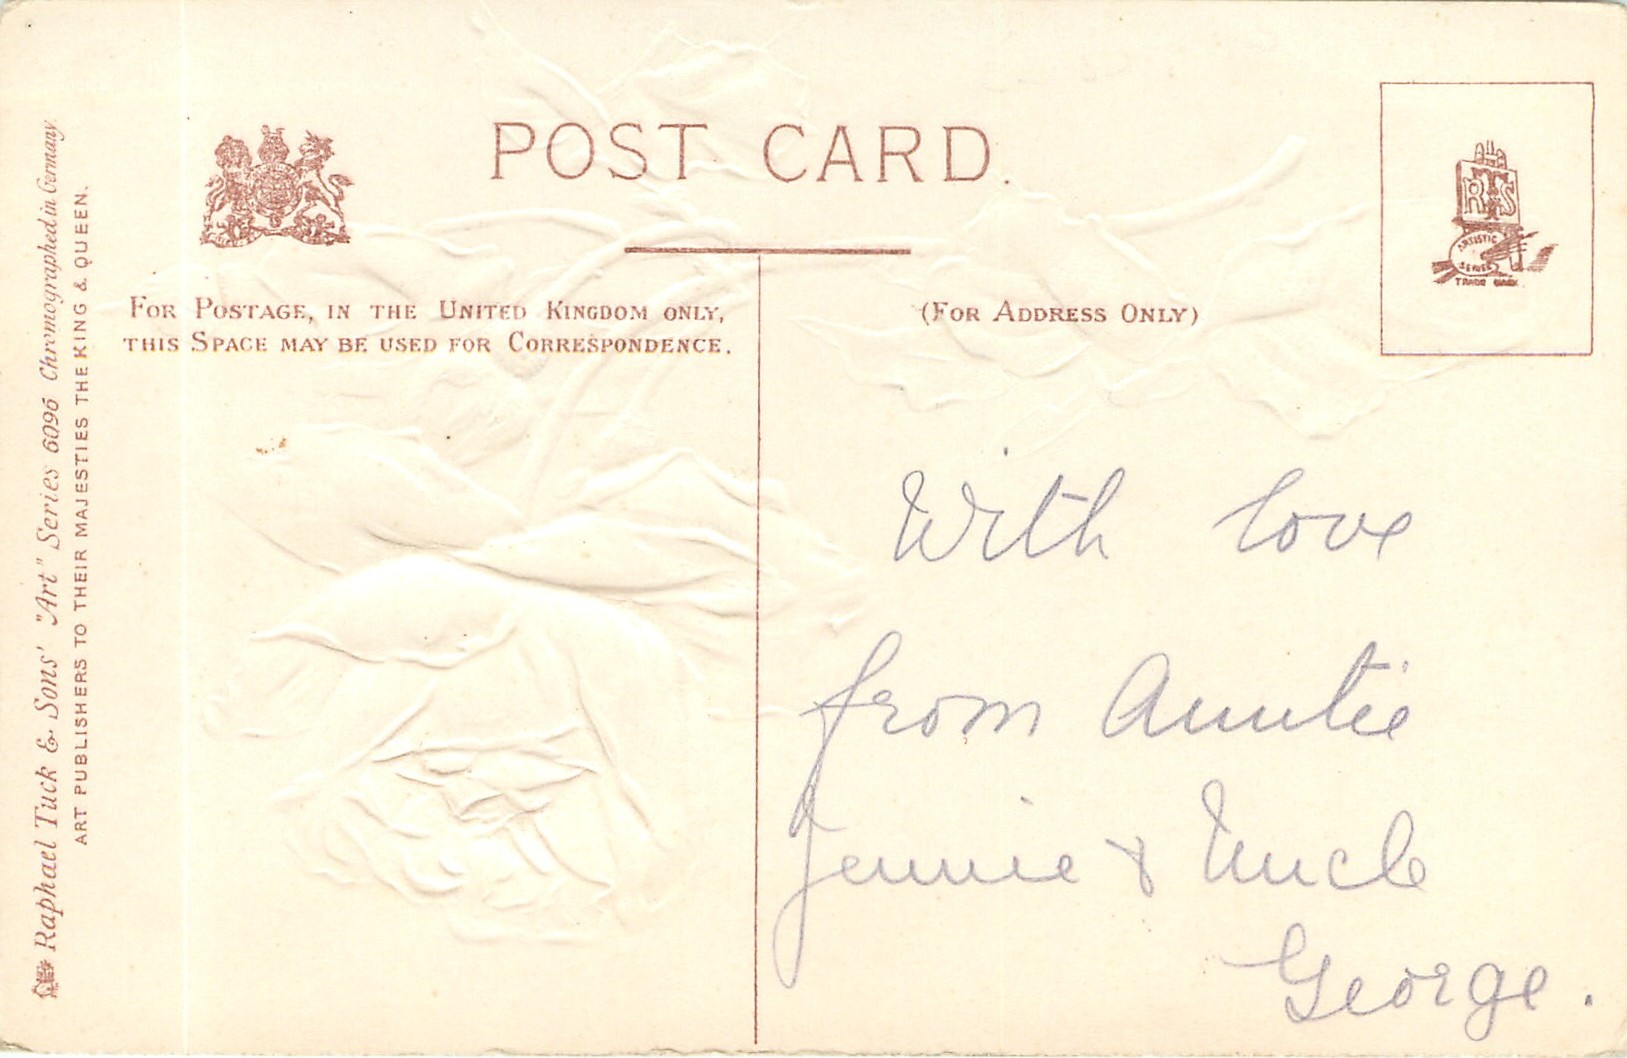 POST CARD.
FOR POSTAGE, IN THE UNITED KINGDOM ONLY,
THIS SPACE MAY BE USED FOR CORRESPONDENCE.
(FOR ADDRESS ONLY)
RTS
ARTISTIC
SERIES
TRADE MARK
Raphael Tuck & Sons' "Art" Series 6096 Chromographed in Germany.
ART PUBLISHERS TO THEIR MAJESTIES THE KING & QUEEN.
With love
from Auntie
Jennie & Uncle
George.